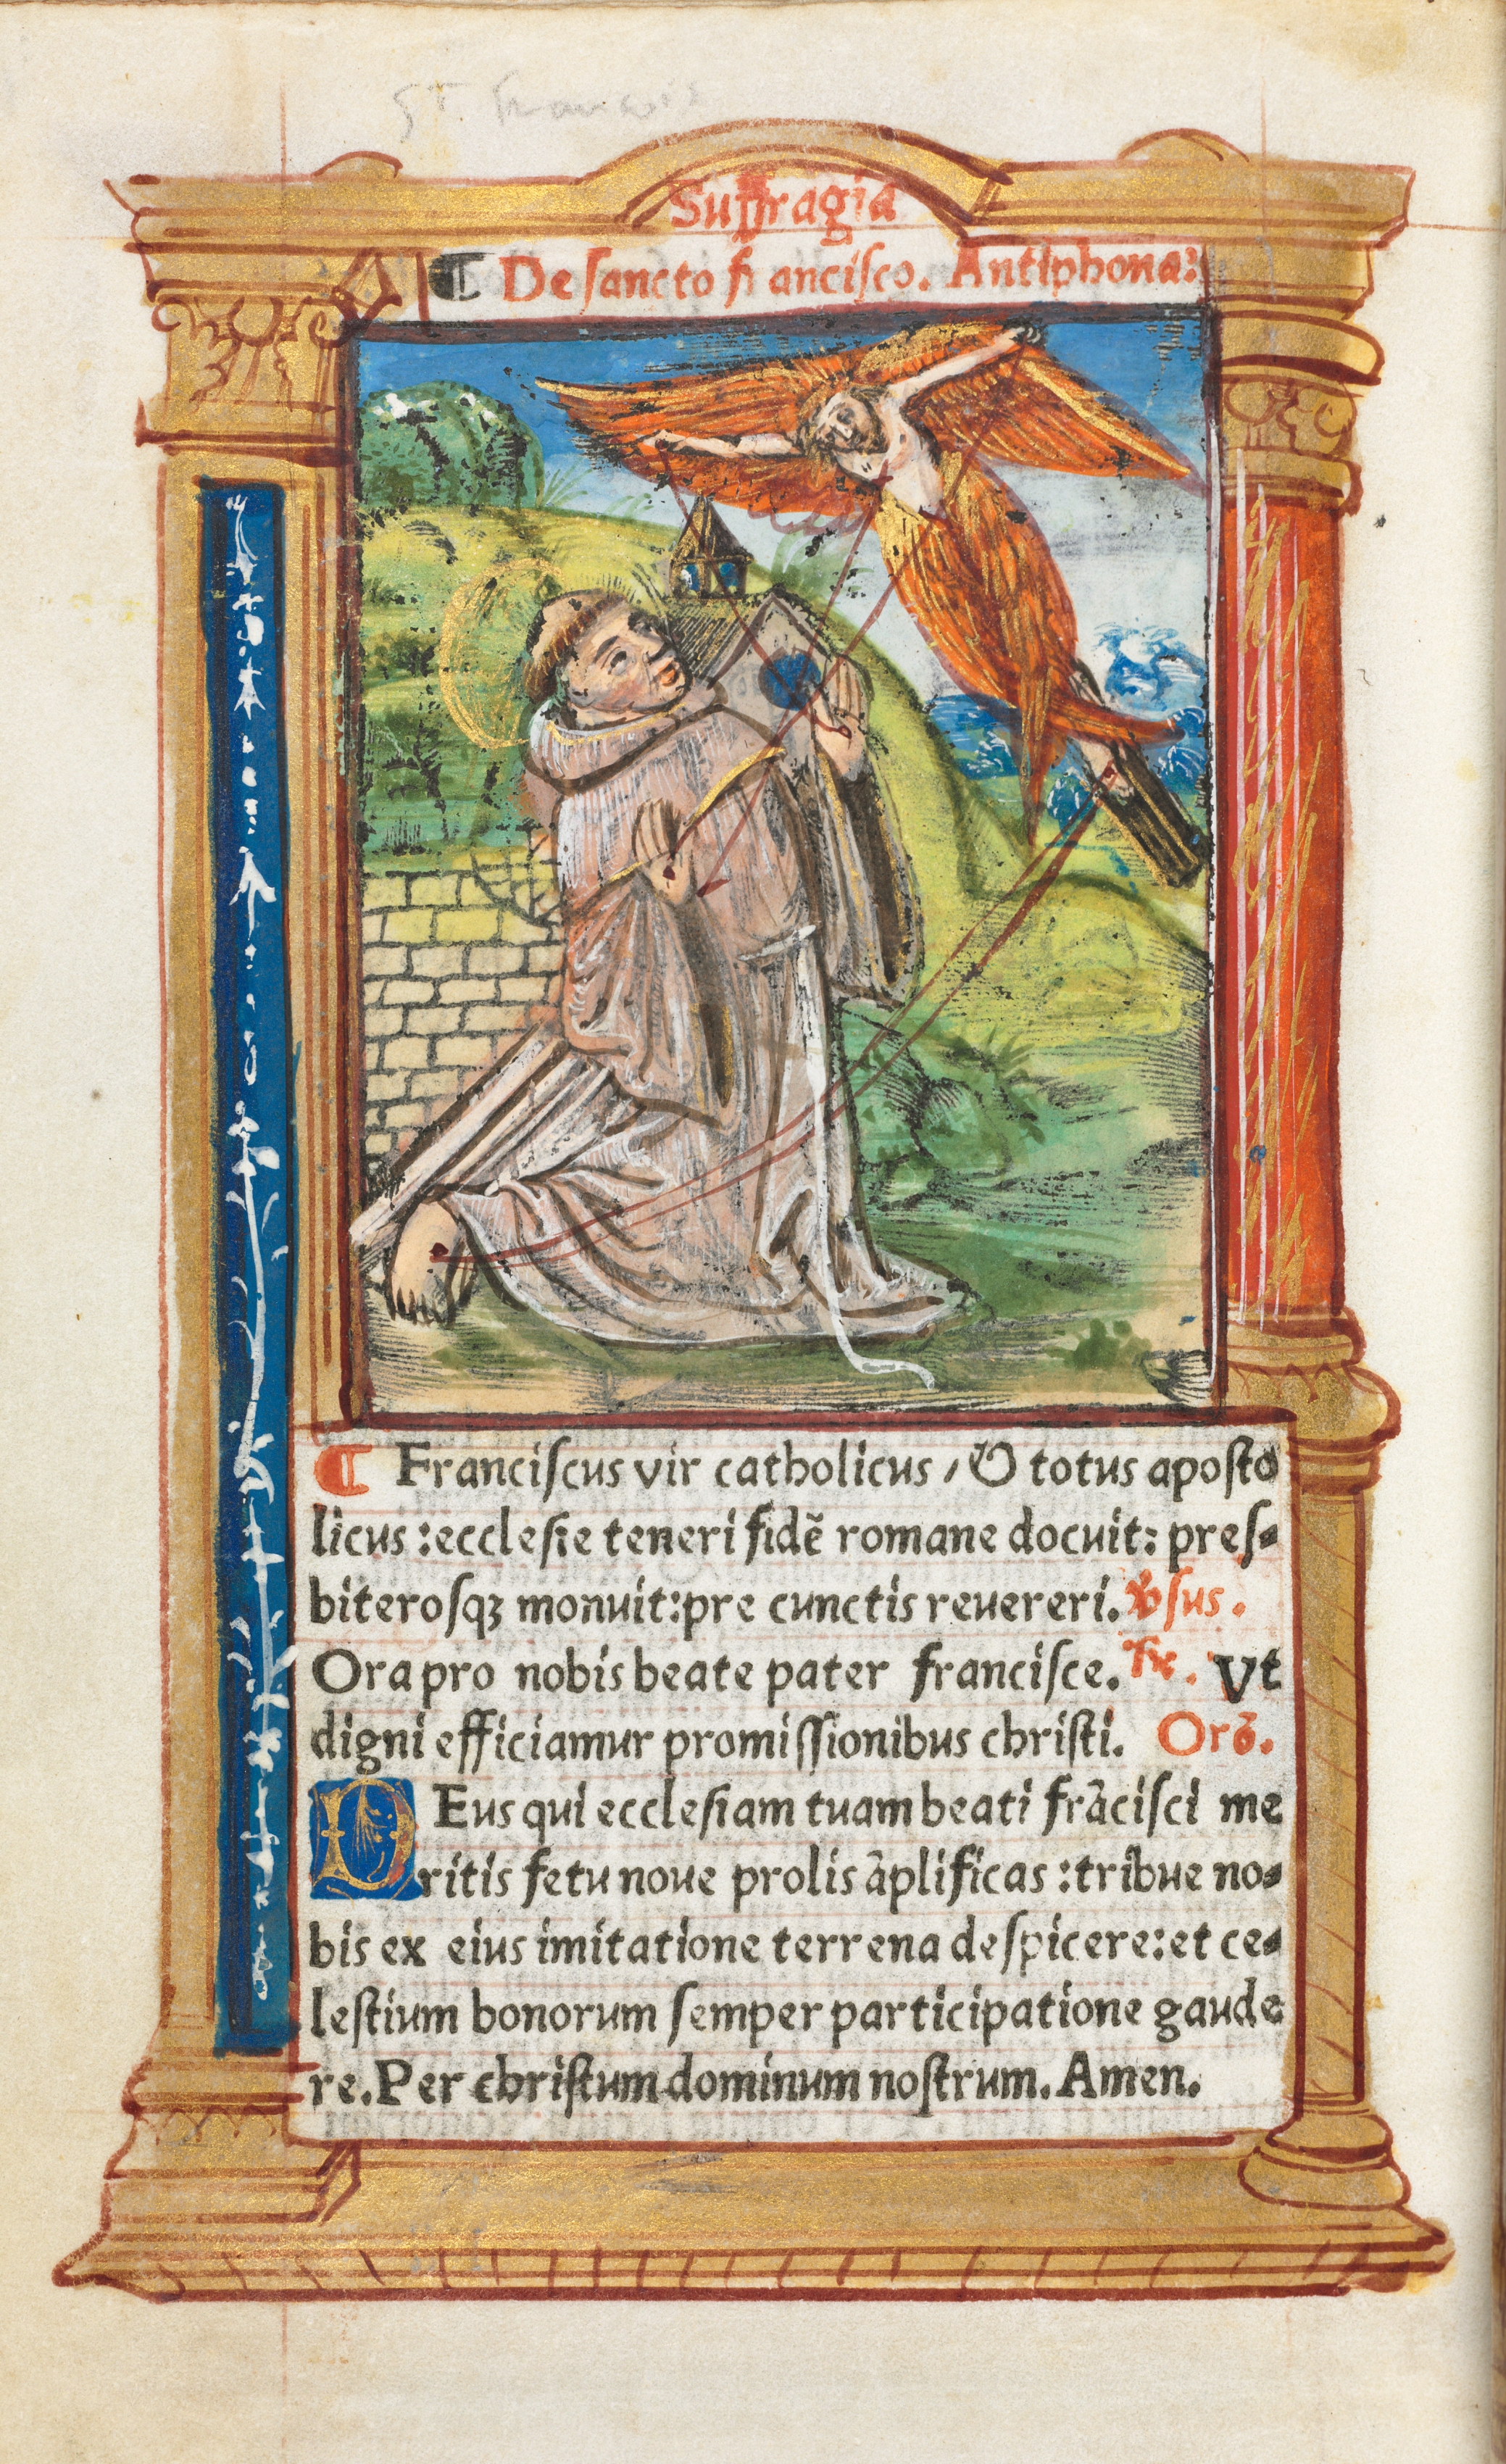 St francois
Suffragia
¶ De sancto francisco. Antiphona:
¶ Franciſcus vir catholicus / & totus apoſto
licus : eccleſie teneri fidē romane docuit: preſ-
biteroſqꝫ monuit: pre cunctis reuereri. ℣ſus.
Ora pro nobis beate pater franciſce. ℟. Vt
digni efficiamur promiſſionibus chriſti. Orō.
DEus qui eccleſiam tuam beati frāciſci me
ritis fetu noue prolis āplificas : tribue no-
bis ex eius imitatione terrena deſpicere: et ce-
leſtium bonorum ſemper participatione gaude
re. Per chriſtum dominum noſtrum. Amen.